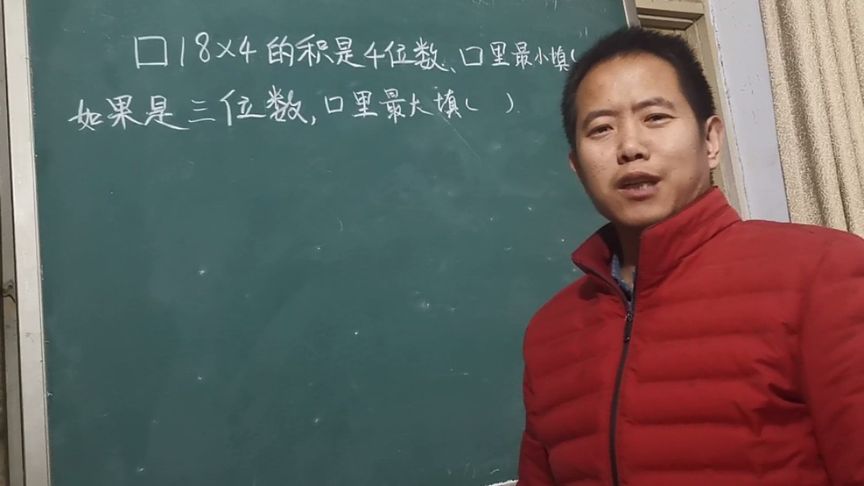 口18×4的积是4位数、口里最小填(
如果是三位数,口里最大填( )